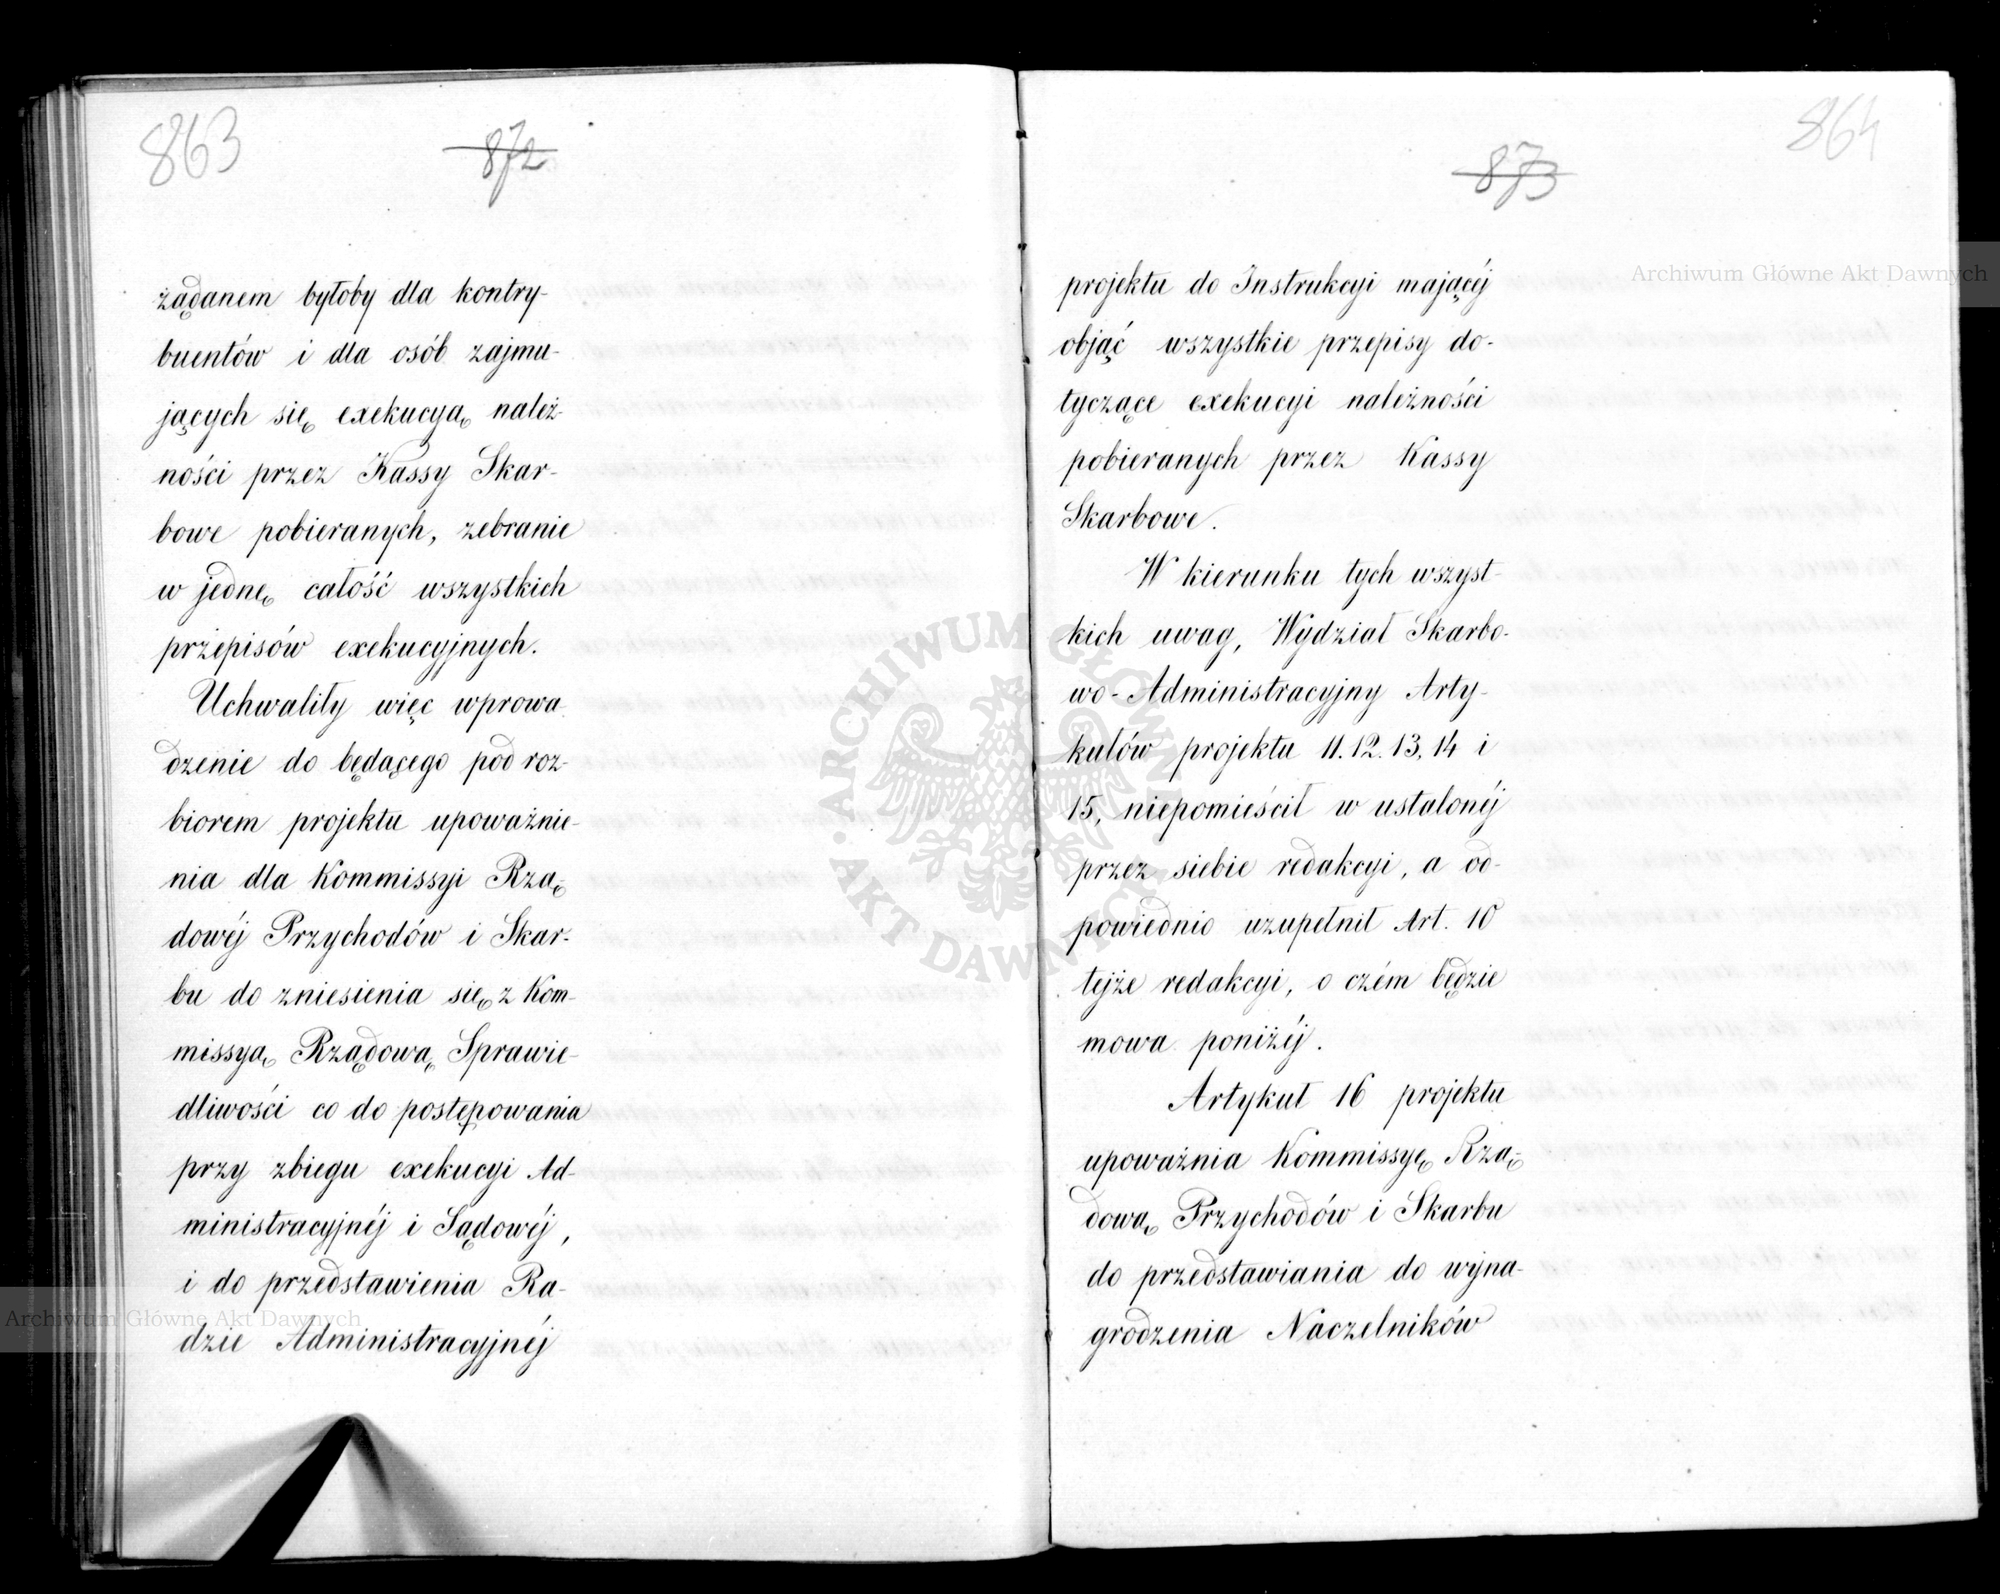 863
872
żądanem byłoby dla kontry-
buentów i dla osób zajmu-
jących się exekucyą należ-
ności przez Kassy Skar-
bowe pobieranych, zebranie
w jednę całość wszystkich
przepisów exekucyjnych.
Uchwaliły więc wprowa-
dzenie do będącego pod roz-
biorem projektu upoważnie-
nia dla Kommissyi Rzą-
dowéj Przychodów i Skar-
bu do zniesienia się z Kom-
missyą Rządową Sprawie-
dliwości co do postępowania
przy zbiegu exekucyi Ad-
ministracyjnéj i Sądowéj,
i do przedstawienia Ra-
dzie Administracyjnéj
864
873
projektu do Instrukcyi mającéj
objąć wszystkie przepisy do-
tyczące exekucyi należności
pobieranych przez Kassy
Skarbowe.
W kierunku tych wszyst-
kich uwag, Wydział Skarbo-
wo-Administracyjny Arty-
kułów projektu 11.12.13,14 i
15, niepomieścił w ustalonéj
przez siebie redakcyi, a od-
powiednio uzupełnił Art. 10
tejże redakcyi, o czém będzie
mowa poniżéj.
Artykuł 16 projektu
upoważnia Kommissyę Rzą-
dową Przychodów i Skarbu
do przedstawiania do wyna-
grodzenia Naczelników
Archiwum Główne Akt Dawnych
Archiwum Główne Akt Dawnych
ARCHIWUM GŁÓWNE
AKT DAWNYCH